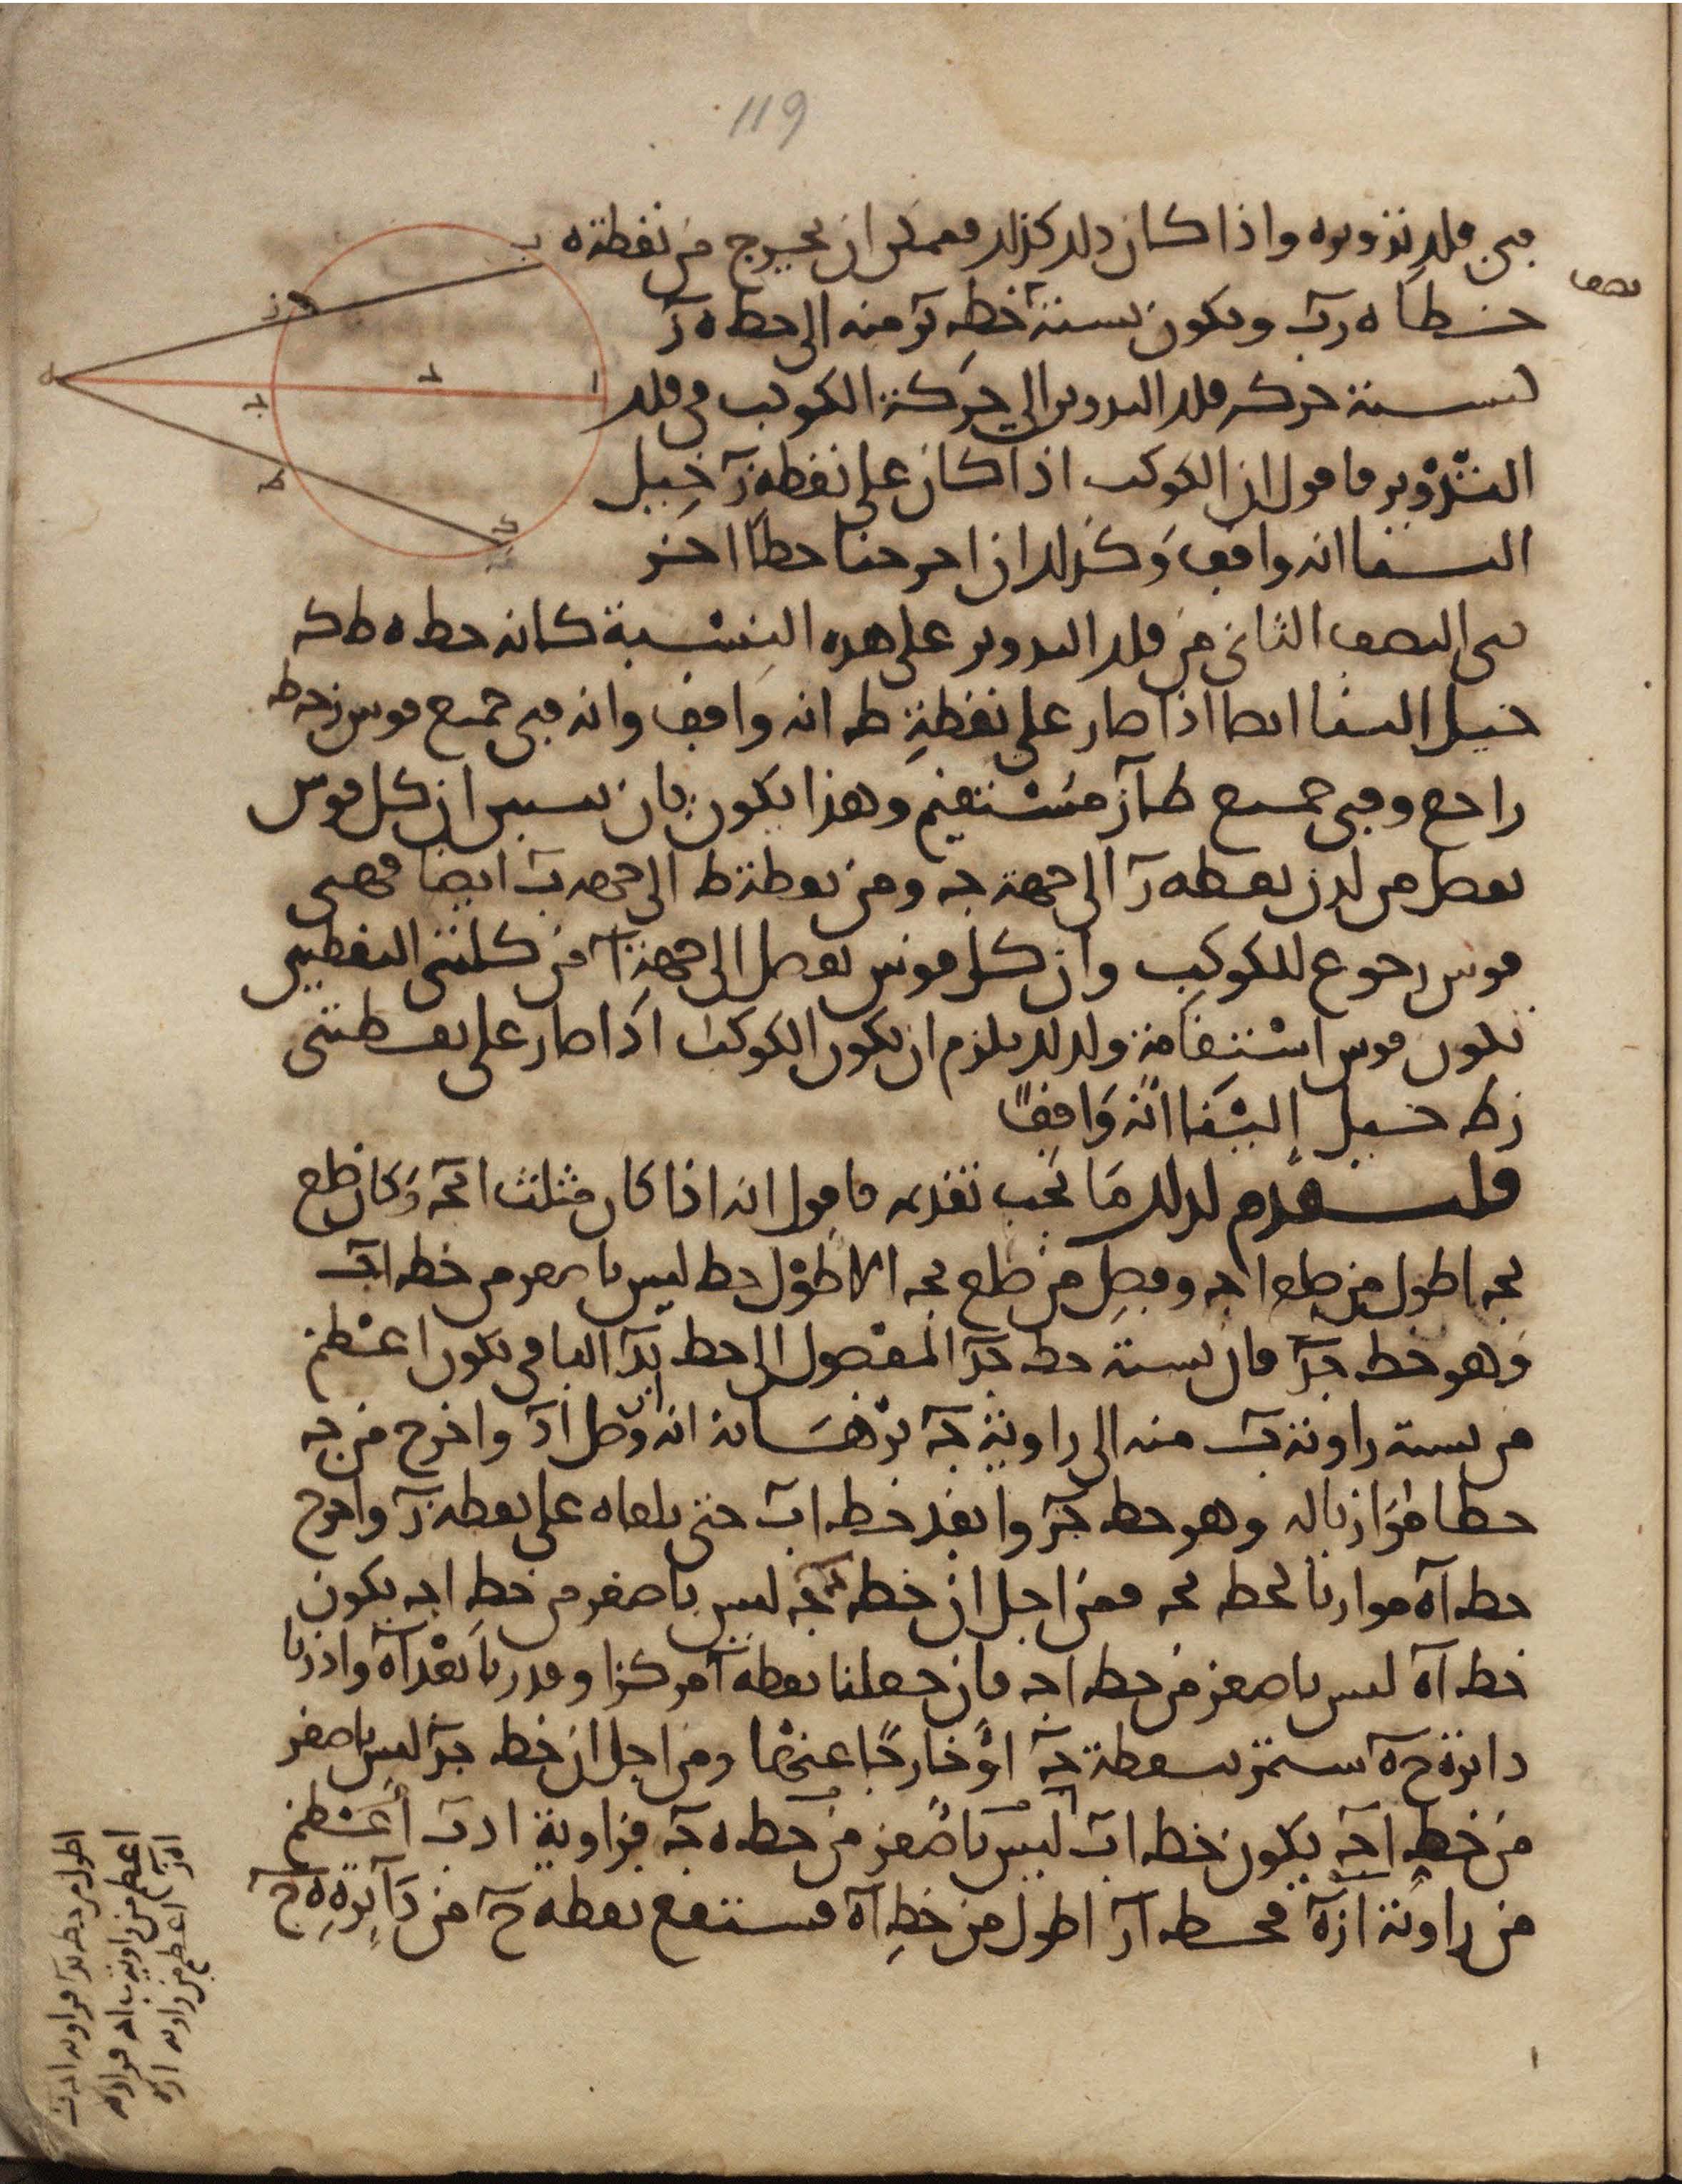 119
في فلك تدويره واذا كان ذلك كذلك فممكن ان يخرج من نقطة ه
نصف
خطا ه ز ب ويكون نسبة خط بز منه الى خط ه ز
كنسبة حركة فلك التدوير الى حركة الكوكب في فلك
التدوير فاقول ان الكوكب اذا كان على نقطة ز خيل
الينا انه واقف وكذلك ان اخرجنا خطا اخر
في النصف الثاني من فلك التدوير على هذه النسبة كانه خط ه ط ك
خيل الينا ايضا اذا صار على نقطة ط انه واقف وانه في جميع قوس ز ح ط
راجع وفي جميع ط ا ز مستقيم وهذا يكون بان نبين ان كل قوس
تفصل من لدن نقطة ز الى جهة ج ومن نقطة ط الى جهة ايضا فهي
قوس رجوع للكوكب وان كل قوس تفصل الى جهة ا من كلتي النقطتين
تكون قوس استقامة ولذلك يلزم ان يكون الكوكب اذا صار على نقطتي
ز ط خيل الينا انه واقفا
فلنقدم لذلك ما يجب تقديمه فاقول انه اذا كان مثلث ابج وكان ضلع
بج اطول من ضلع اج وفصل من ضلع بج الاطول خط ليس باصغر من خط اب
وهو خط جد فان نسبة خط جد المفصول الى خط بد الباقي يكون اعظم
من نسبة زاوية ب منه الى زاوية ج برهانه انه وصل اد واخرج من ج
خطا موازيا له وهو خط جز وانفذ خط اب حتى يلقاه على نقطة ز واخرج
خط اه موازيا لخط بج فمن اجل ان خط ليس باصغر من خط اج يكون
خط اه ليس باصغر من خط اج فان جعلنا نقطة ا مركزا وقدرنا ببعد اه وادرنا
دائرة ح ه ستمر بنقطة ج او خارجا عنها ومن اجل ان خط جد ليس باصغر
من خط اج يكون خط اب ليس باصغر من خط ه ج فزاوية ا د ب اعظم
من زاوية ا ز ه فخط ا ز اطول من خط اه فستقع نقطة ح من دائرة ه ح
اطول من خط بد فزاوية ادب
اعظم من زاوية ب اد فزاوية
اه ز اعظم من زاوية ا ز ه